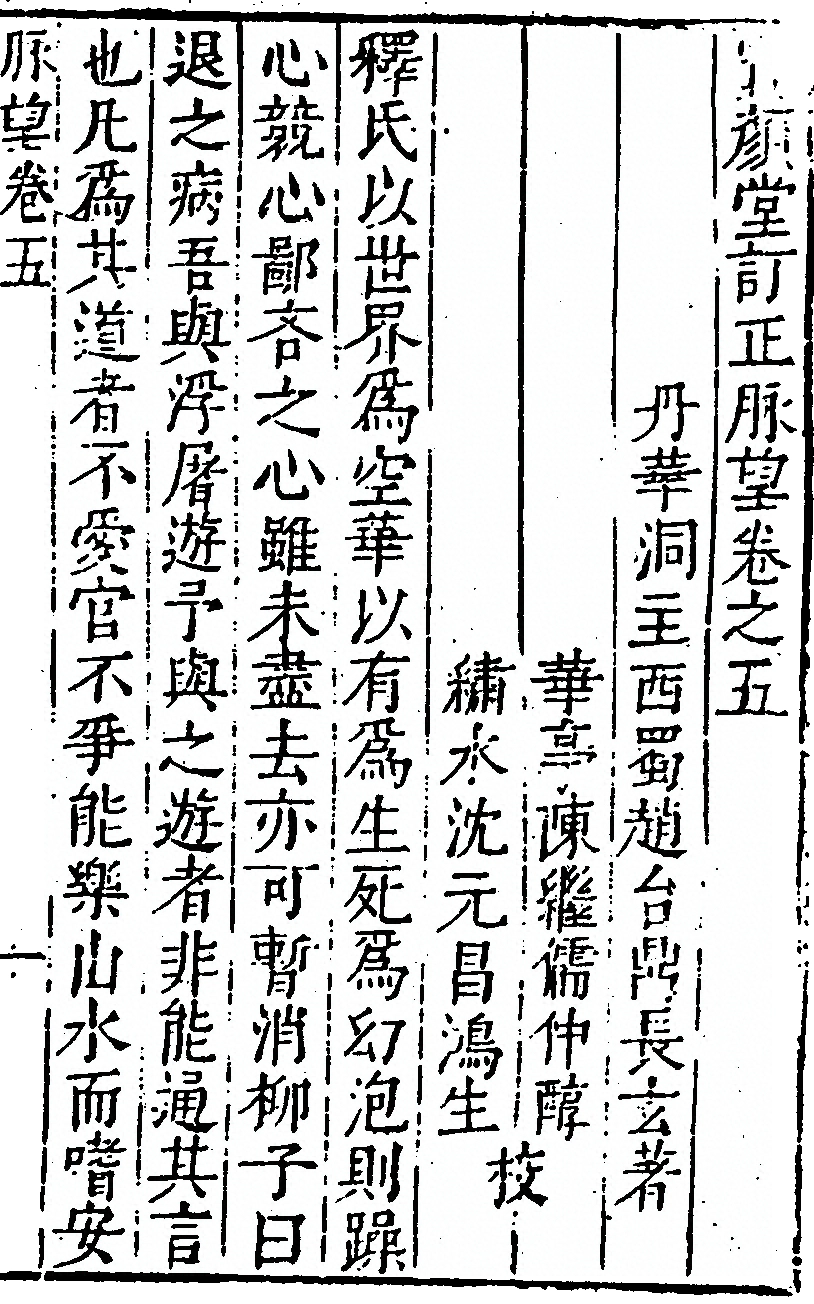 顔堂訂正脉望卷之五
丹華洞主西蜀趙台鼎長玄著
華亭陳繼儒仲醇
繡水沈元昌鴻生
校
釋氏以世界爲空華以有爲生死爲幻泡則躁
心競心鄙吝之心雖未盡去亦可暫消柳子曰
退之病吾與浮屠遊予與之遊者非能通其言
也凡爲其道者不愛官不爭能樂山水而嗜安
脉望卷五
一